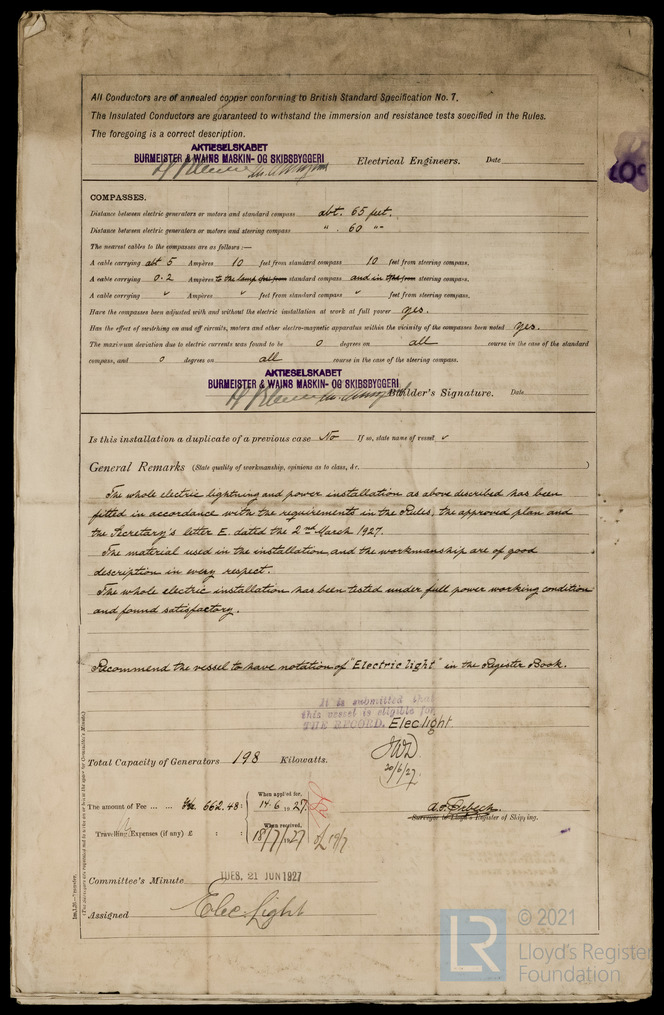 All Conductors are of annealed copper conforming to British Standard Specification No. 7.
The Insulated Conductors are guaranteed to withstand the immersion and resistance tests specified in the Rules.
The foregoing is a correct description.
AKTIESELSKABET
BURMEISTER & WAINS MASKIN- OG SKIBSBYGGERI Electrical Engineers. Date
COMPASSES.
Distance between electric generators or motors and standard compass abt. 65 feet.
Distance between electric generators or motors and steering compass " . 60 "
The nearest cables to the compasses are as follows:—
A cable carrying abt 5 Ampères 10 feet from standard compass 10 feet from steering compass.
A cable carrying 0.2 Ampères to the lamp feet from standard compass and in the from steering compass.
A cable carrying " Ampères " feet from standard compass " feet from steering compass.
Have the compasses been adjusted with and without the electric installation at work at full power yes.
Has the effect of switching on and off circuits, motors and other electro-magnetic apparatus within the vicinity of the compasses been noted yes.
The maximum deviation due to electric currents was found to be 0 degrees on all course in the case of the standard
compass, and 0 degrees on all course in the case of the steering compass.
AKTIESELSKABET
BURMEISTER & WAINS MASKIN- OG SKIBSBYGGERI Builder's Signature. Date
Is this installation a duplicate of a previous case No If so, state name of vessel
General Remarks (State quality of workmanship, opinions as to class, &c.)
The whole electric lightning and power installation as above described has been
fitted in accordance with the requirements in the Rules, the approved plan and
the Secretary's letter E. dated the 2nd March 1927.
The material used in the installation and the workmanship are of good
description in every respect.
The whole electric installation has been tested under full power working condition
and found satisfactory.
Recommend the vessel to have notation of "Electric light" in the Register Book.
It is submitted that
this vessel is eligible for
THE RECORD. Elec light.
JWD
20/6/27.
Total Capacity of Generators 198 Kilowatts.
The amount of Fee ... ... 662.48: When applied for, 14.6.1927.
Travelling Expenses (if any) £ : : When received, 18/7/1927
Surveyor to Lloyd's Register of Shipping.
Committee's Minute TUES. 21 JUN 1927
Assigned Elec. Light
© 2021
LR Lloyd's Register
Foundation